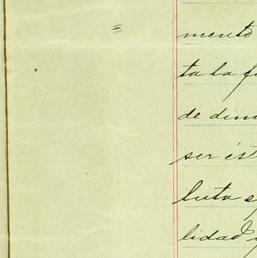 mento
ta la f
de dim
ser ést
luta s
lidad y